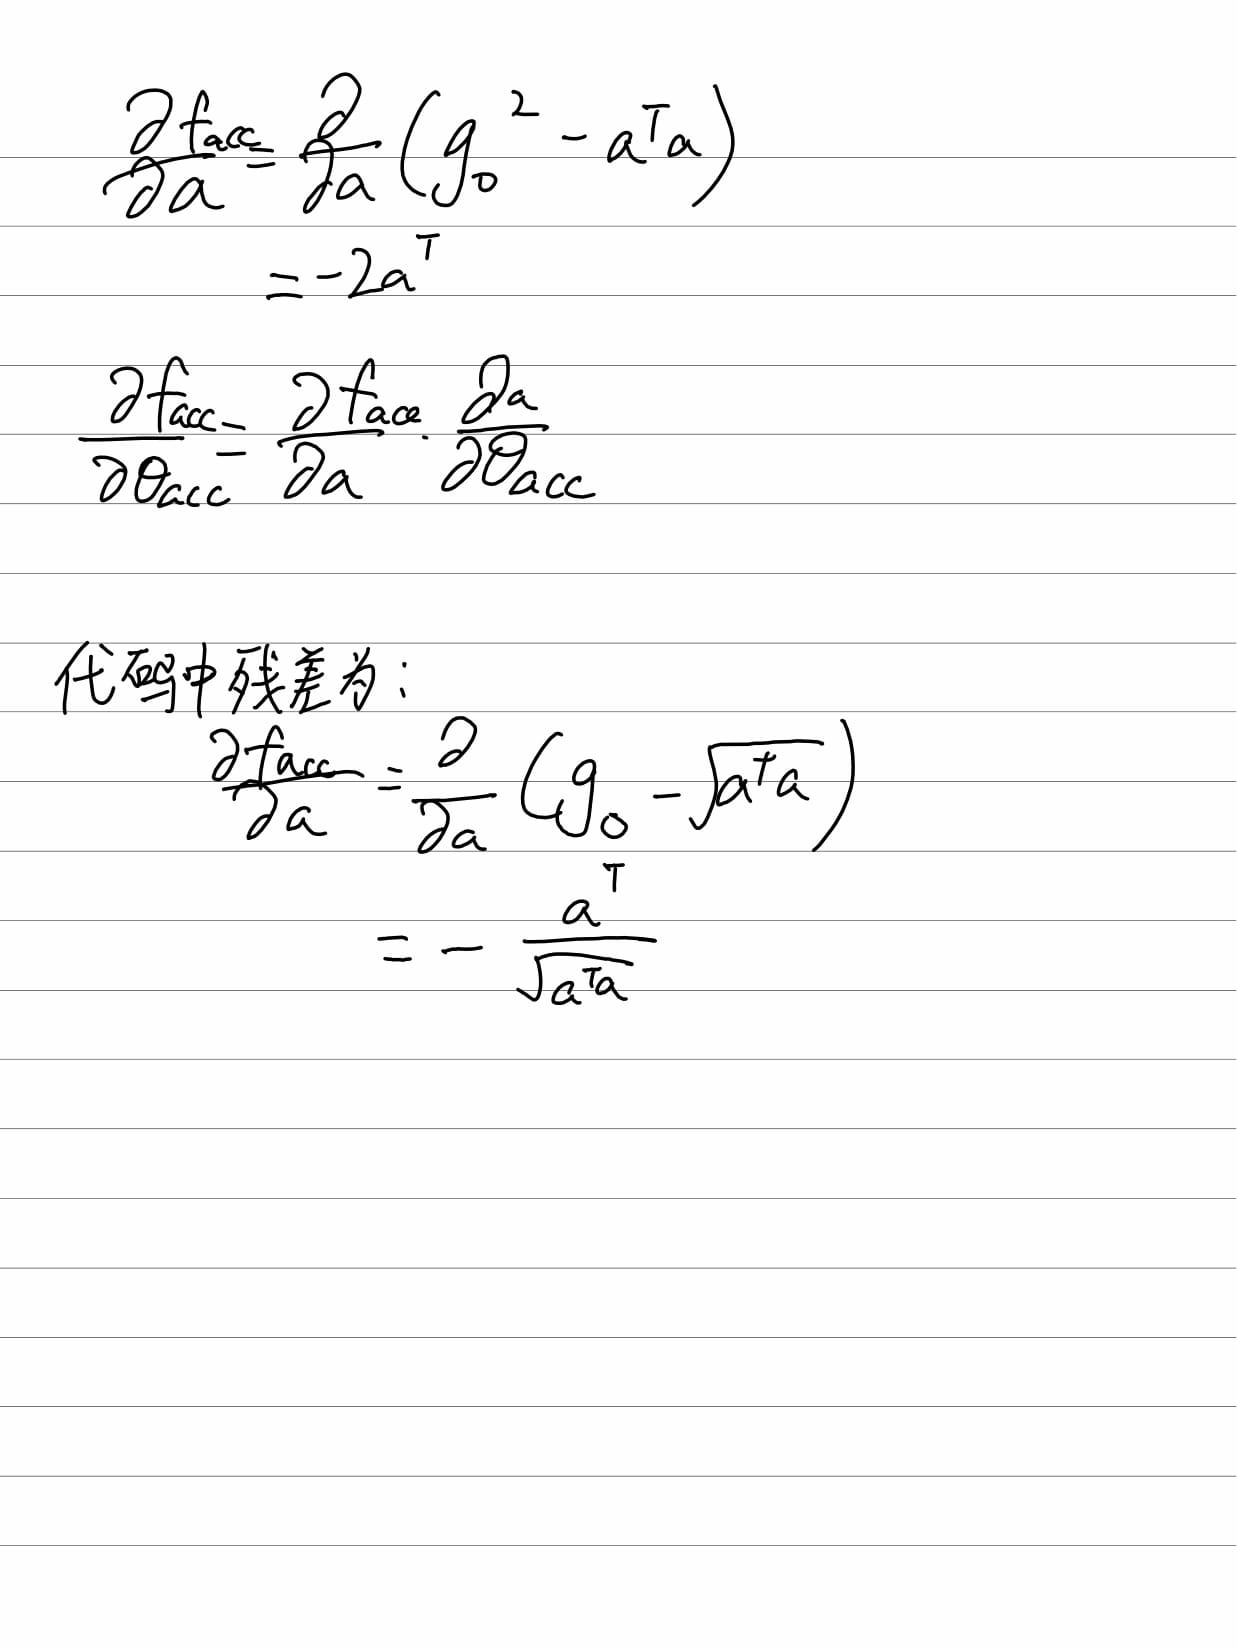 ∂f_acc/∂a = ∂/∂a (g₀² - aᵀa)
= -2aᵀ
∂f_acc/∂θ_acc = ∂f_acc/∂a · ∂a/∂θ_acc
代码中残差为:
∂f_acc/∂a = ∂/∂a (g₀ - √(aᵀa))
= - aᵀ/√(aᵀa)